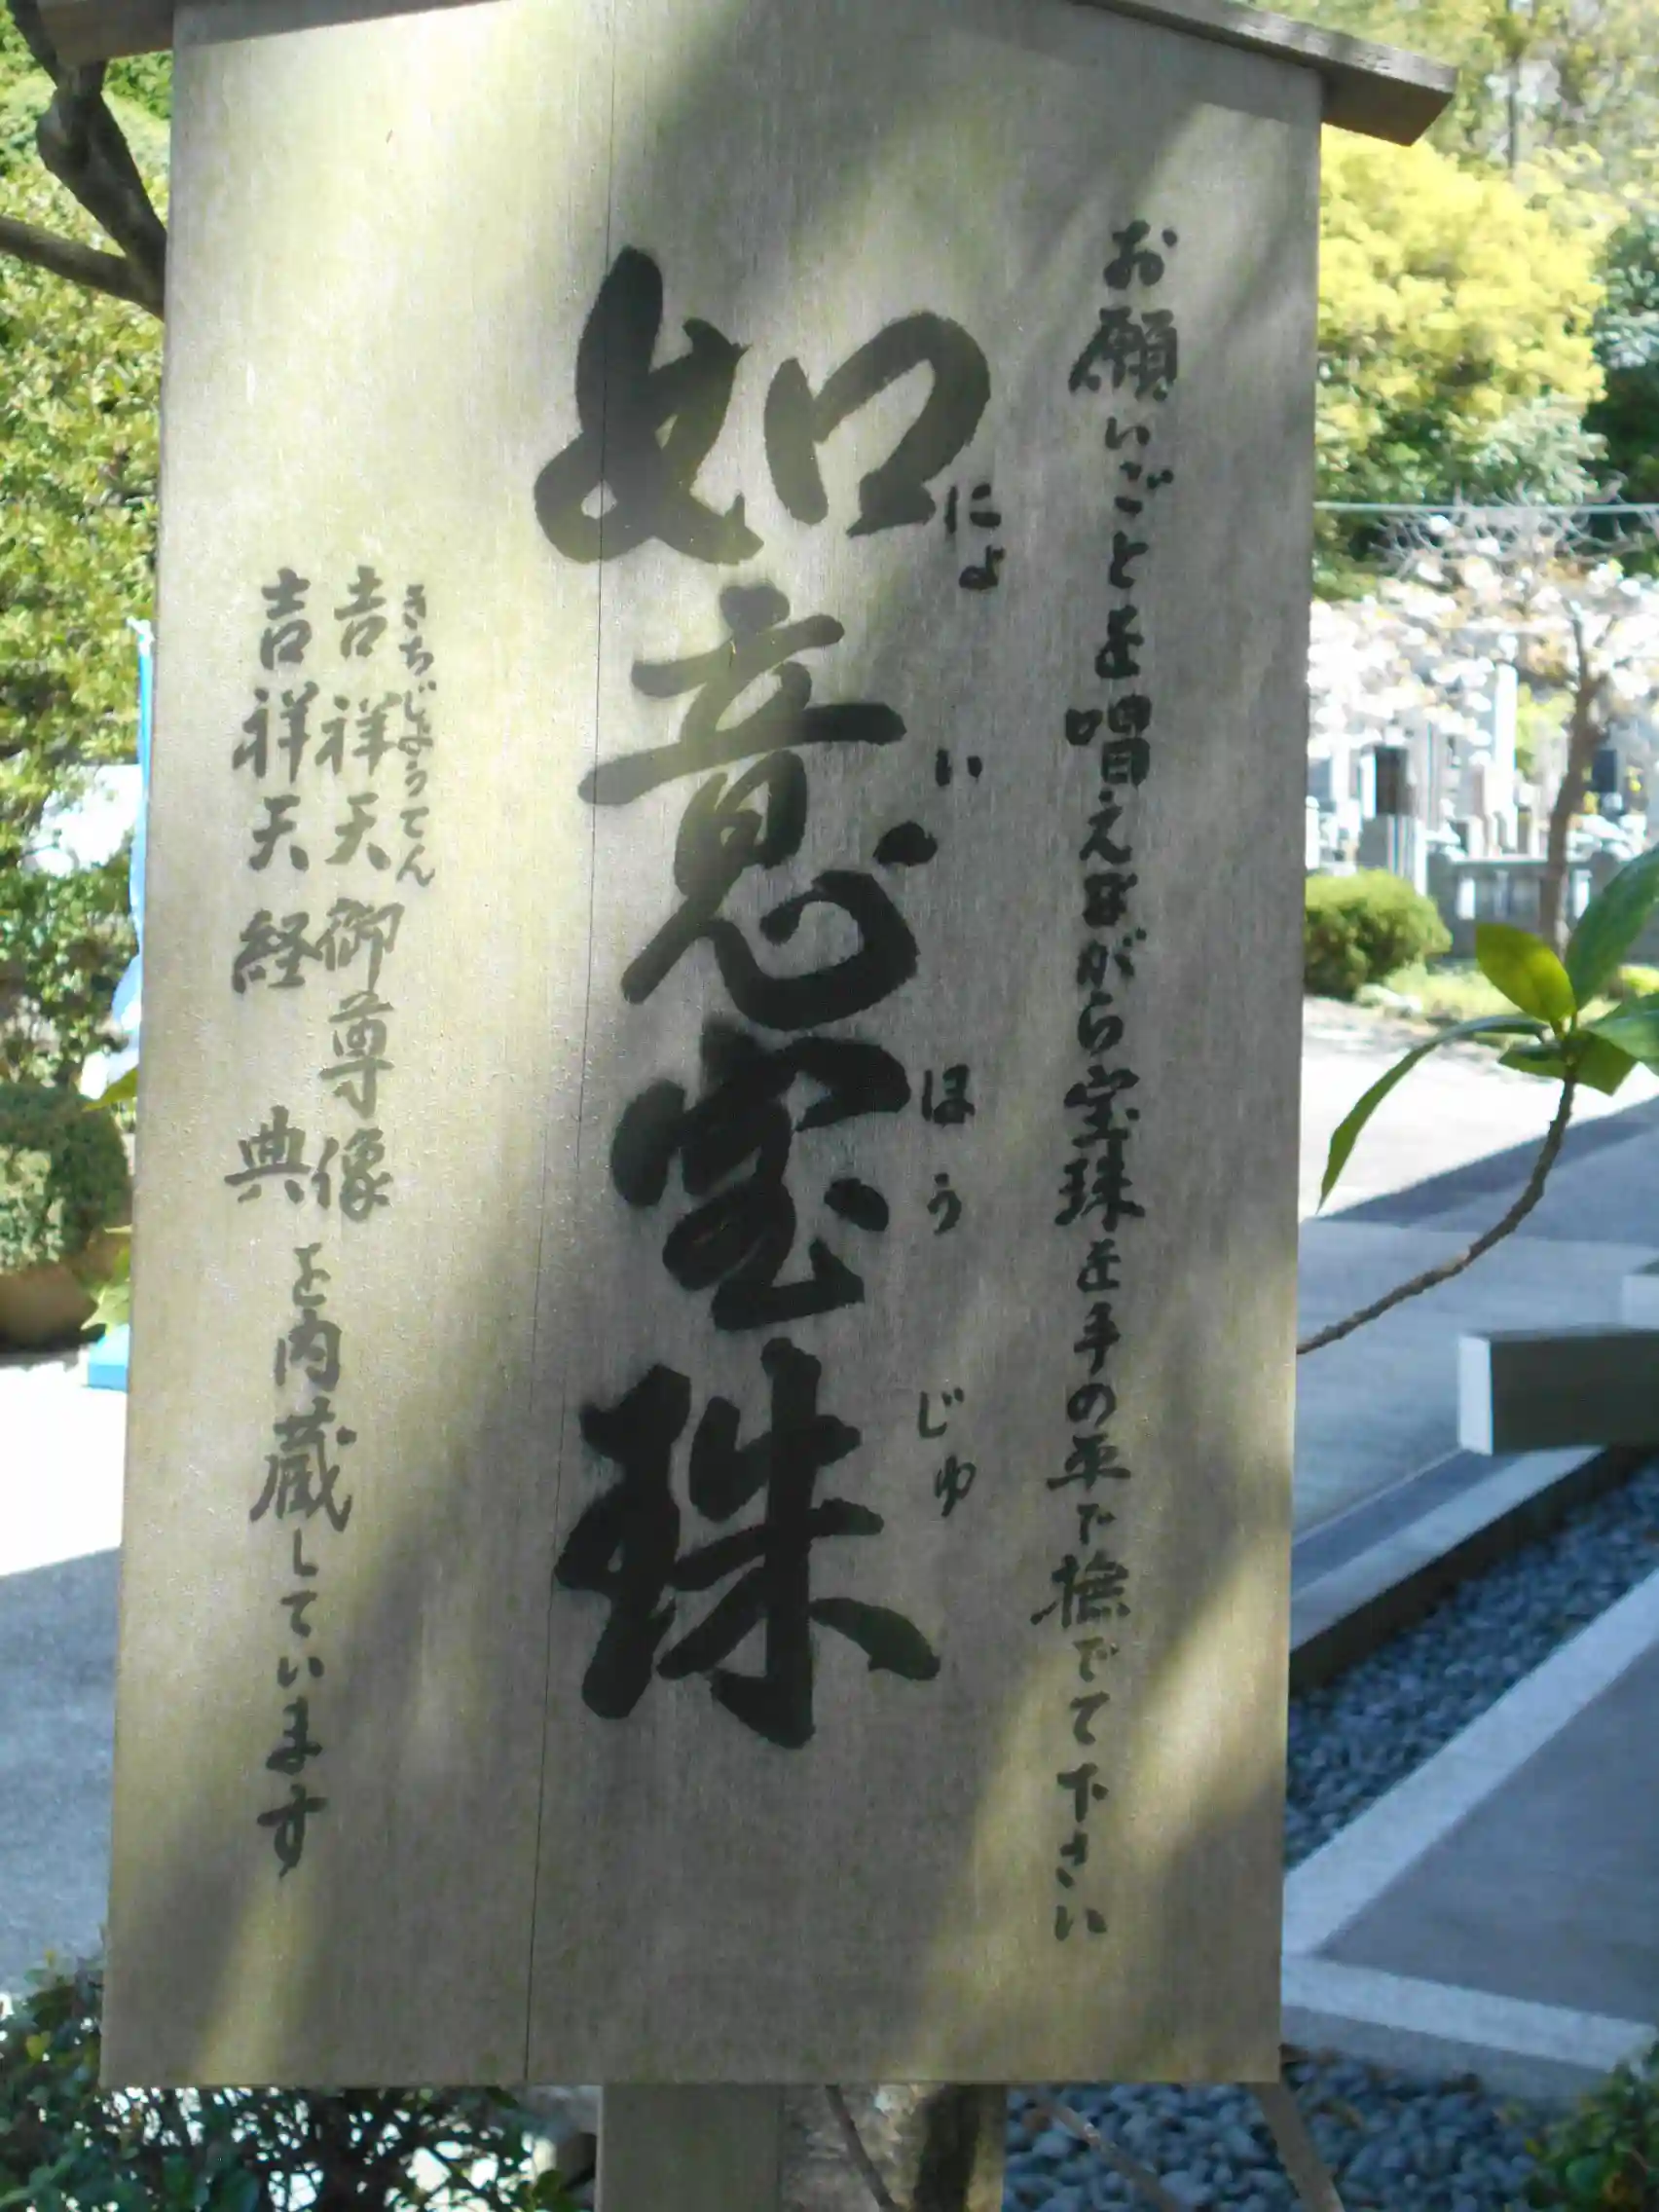 お願いごとを唱えながら宝珠を手の平で撫でて下さい
如意宝珠
にょいほうじゅ
吉祥天御尊像
きちじょうてん
吉祥天経典
を内蔵しています